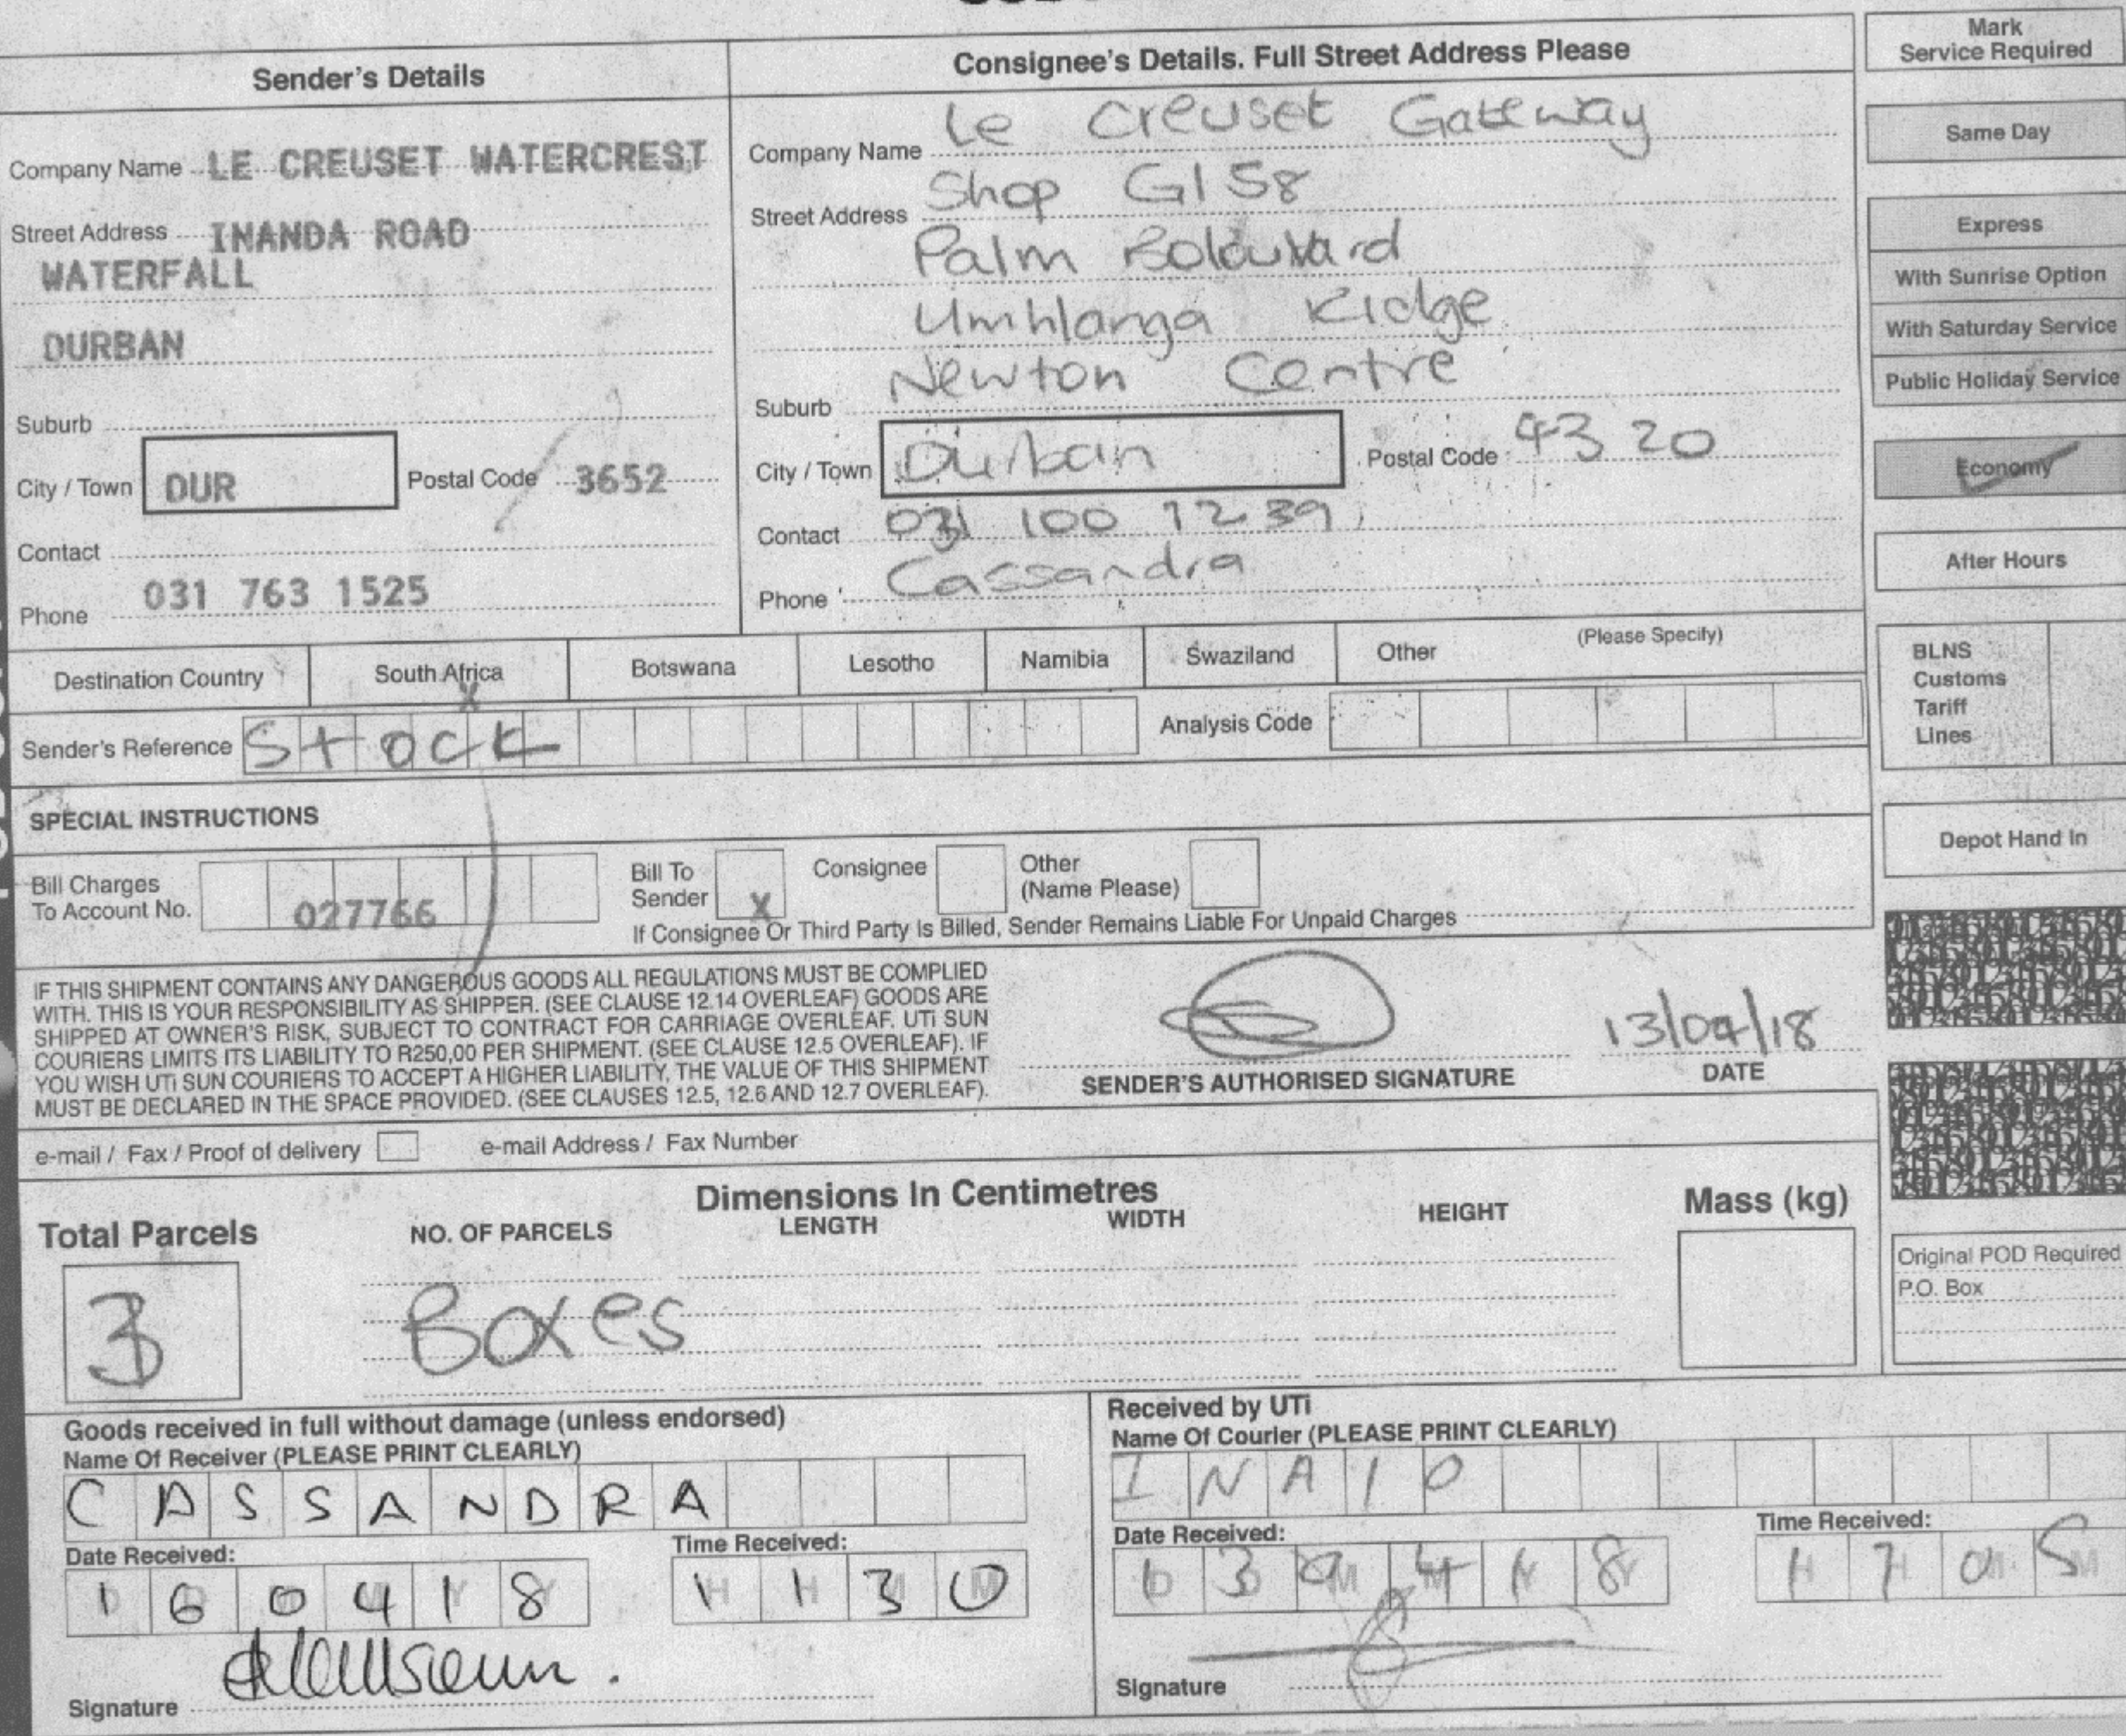 Sender's Details
Company Name LE CREUSET WATERCREST
Street Address INANDA ROAD
WATERFALL
DURBAN
Suburb
City / Town DUR Postal Code 3652
Contact
Phone 031 763 1525
Consignee's Details. Full Street Address Please
Company Name Le Creuset Gateway
Street Address Shop G158
Palm
Umhlanga Ridge
Suburb Newton Centre
City / Town Durban Postal Code 4320
Contact 031 100 1239
Phone Cassandra
Mark
Service Required
Same Day
Express
With Sunrise Option
With Saturday Service
Public Holiday Service
Economy
After Hours
Destination Country South Africa X Botswana Lesotho Namibia Swaziland Other (Please Specify)
Sender's Reference Stock Analysis Code
BLNS
Customs
Tariff
Lines
SPECIAL INSTRUCTIONS
Depot Hand In
Bill Charges
To Account No. 027766
Bill To
Sender X
Consignee
Other
(Name Please)
If Consignee Or Third Party Is Billed, Sender Remains Liable For Unpaid Charges
IF THIS SHIPMENT CONTAINS ANY DANGEROUS GOODS ALL REGULATIONS MUST BE COMPLIED
WITH. THIS IS YOUR RESPONSIBILITY AS SHIPPER. (SEE CLAUSE 12.14 OVERLEAF) GOODS ARE
SHIPPED AT OWNER'S RISK, SUBJECT TO CONTRACT FOR CARRIAGE OVERLEAF. UTi SUN
COURIERS LIMITS ITS LIABILITY TO R250,00 PER SHIPMENT. (SEE CLAUSE 12.5 OVERLEAF). IF
YOU WISH UTi SUN COURIERS TO ACCEPT A HIGHER LIABILITY, THE VALUE OF THIS SHIPMENT
MUST BE DECLARED IN THE SPACE PROVIDED. (SEE CLAUSES 12.5, 12.6 AND 12.7 OVERLEAF).
SENDER'S AUTHORISED SIGNATURE
13/04/18
DATE
e-mail / Fax / Proof of delivery e-mail Address / Fax Number
Dimensions In Centimetres
Total Parcels NO. OF PARCELS LENGTH WIDTH HEIGHT Mass (kg)
3 Boxes
Original POD Required
P.O. Box
Goods received in full without damage (unless endorsed)
Name Of Receiver (PLEASE PRINT CLEARLY)
CASSANDRA
Date Received: Time Received:
160418 1130
Signature
Received by UTi
Name Of Courier (PLEASE PRINT CLEARLY)
Date Received: Time Received:
130418 1705
Signature